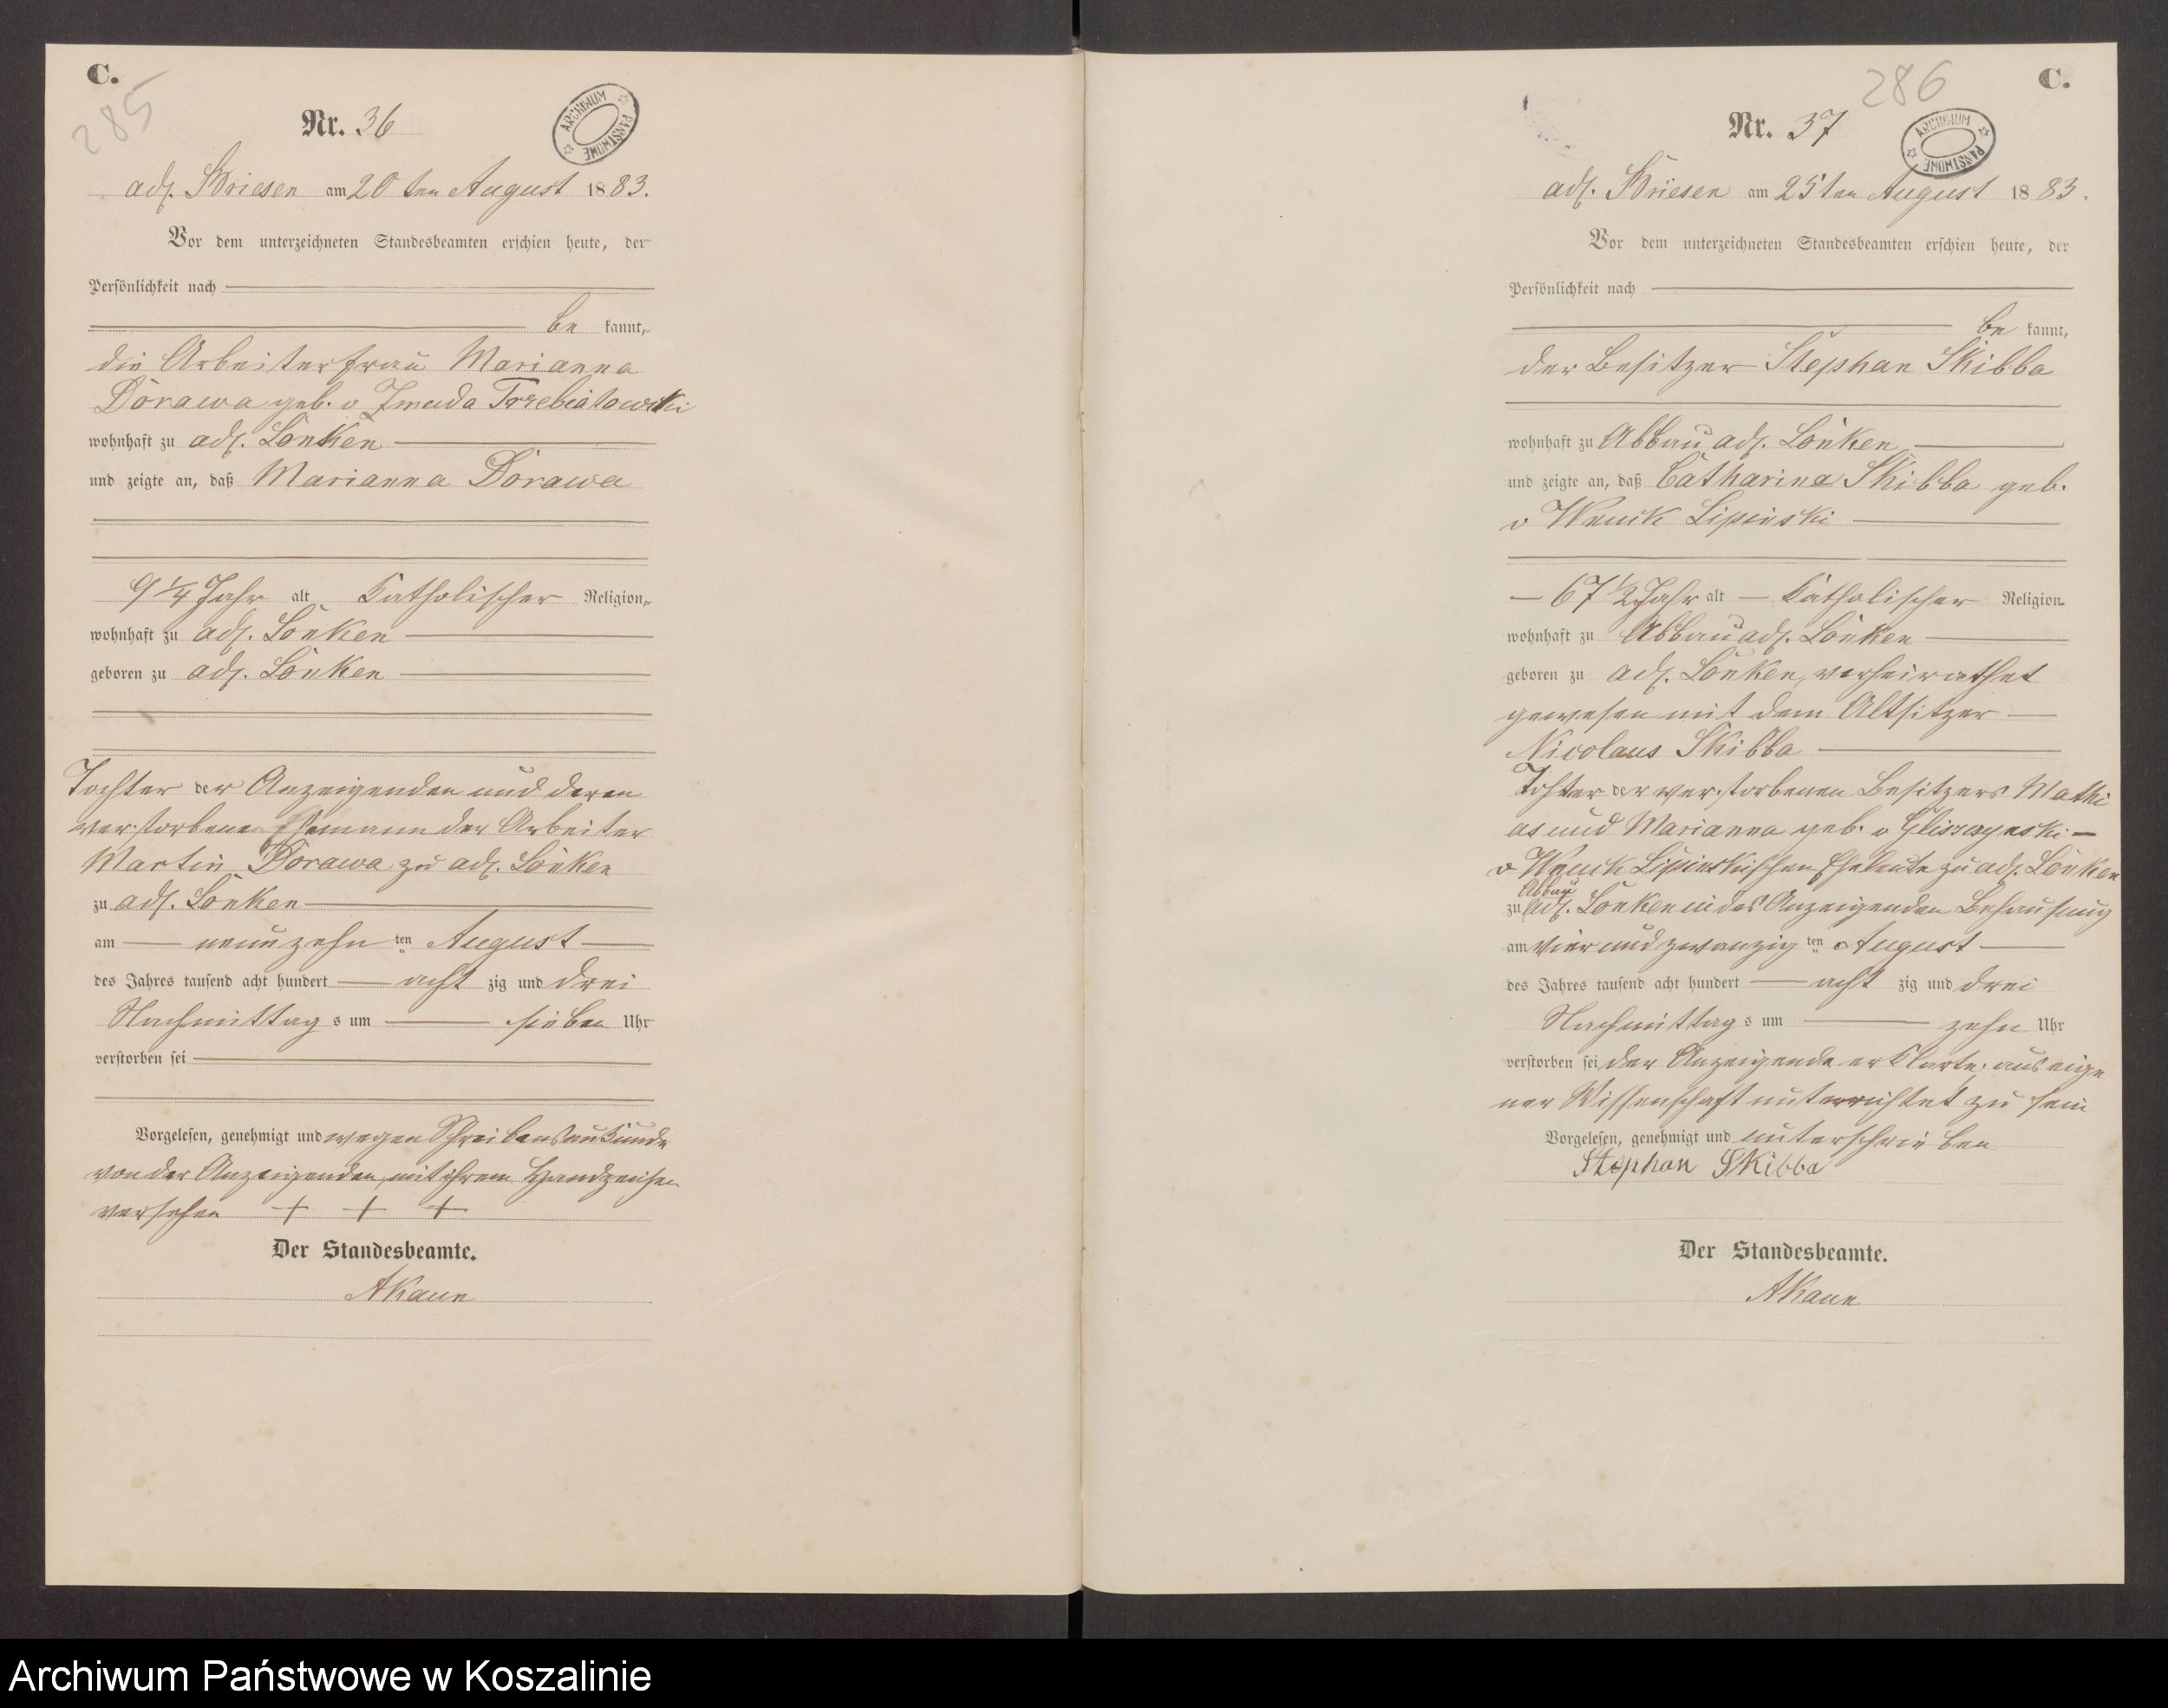 C.
285
Nr. 36
ARCHIWUM PAŃSTWOWE
adl. Briesen am 20ten August 1883.
Vor dem unterzeichneten Standesbeamten erschien heute, der
Persönlichkeit nach
be kannt,
die Arbeiterfrau Marianna
Dorawa geb. v Zmuda Trzebiatowski
wohnhaft zu adl. Lonken
und zeigte an, daß Marianna Dorawa
9 1/4 Jahr alt Katholischer Religion,
wohnhaft zu adl. Lonken
geboren zu adl. Lonken
Tochter der Anzeigenden und deren
verstorbenen Ehemann der Arbeiter
Martin Dorawa zu adl. Lonken
zu adl. Lonken
am neunzehn ten August
des Jahres tausend acht hundert acht zig und drei
Nachmittag s um sieben Uhr
verstorben sei
Vorgelesen, genehmigt und wegen Schreibensunkunde
von der Anzeigenden mit ihrem Handzeichen
versehen + + +
Der Standesbeamte.
C.
286
Nr. 37
ARCHIWUM PAŃSTWOWE
adl. Briesen am 25ten August 1883.
Vor dem unterzeichneten Standesbeamten erschien heute, der
Persönlichkeit nach
be kannt,
der Besitzer Stephan Skibba
wohnhaft zu Abbau adl. Lonken
und zeigte an, daß Catharina Skibba geb.
v Wnuck Lipinski
67 1/2 Jahr alt Katholischer Religion
wohnhaft zu Abbau adl. Lonken
geboren zu adl. Lonken, verheirathet
gewesen mit dem Altsitzer
Nicolaus Skibba
Tochter der verstorbenen Besitzers Mathi
as und Marianna geb. v Gliszczynski
v Wnuck Lipinskischen Eheleute zu adl. Lonken
Abbau
zu adl. Lonken in des Anzeigenden Behausung
am vierundzwanzig ten August
des Jahres tausend acht hundert acht zig und drei
Nachmittag s um zehn Uhr
verstorben sei der Anzeigende erklärte: aus eige
ner Wissenschaft unterrichtet zu sein
Vorgelesen, genehmigt und unterschrieben
Stephan Skibba
Der Standesbeamte.
Archiwum Państwowe w Koszalinie